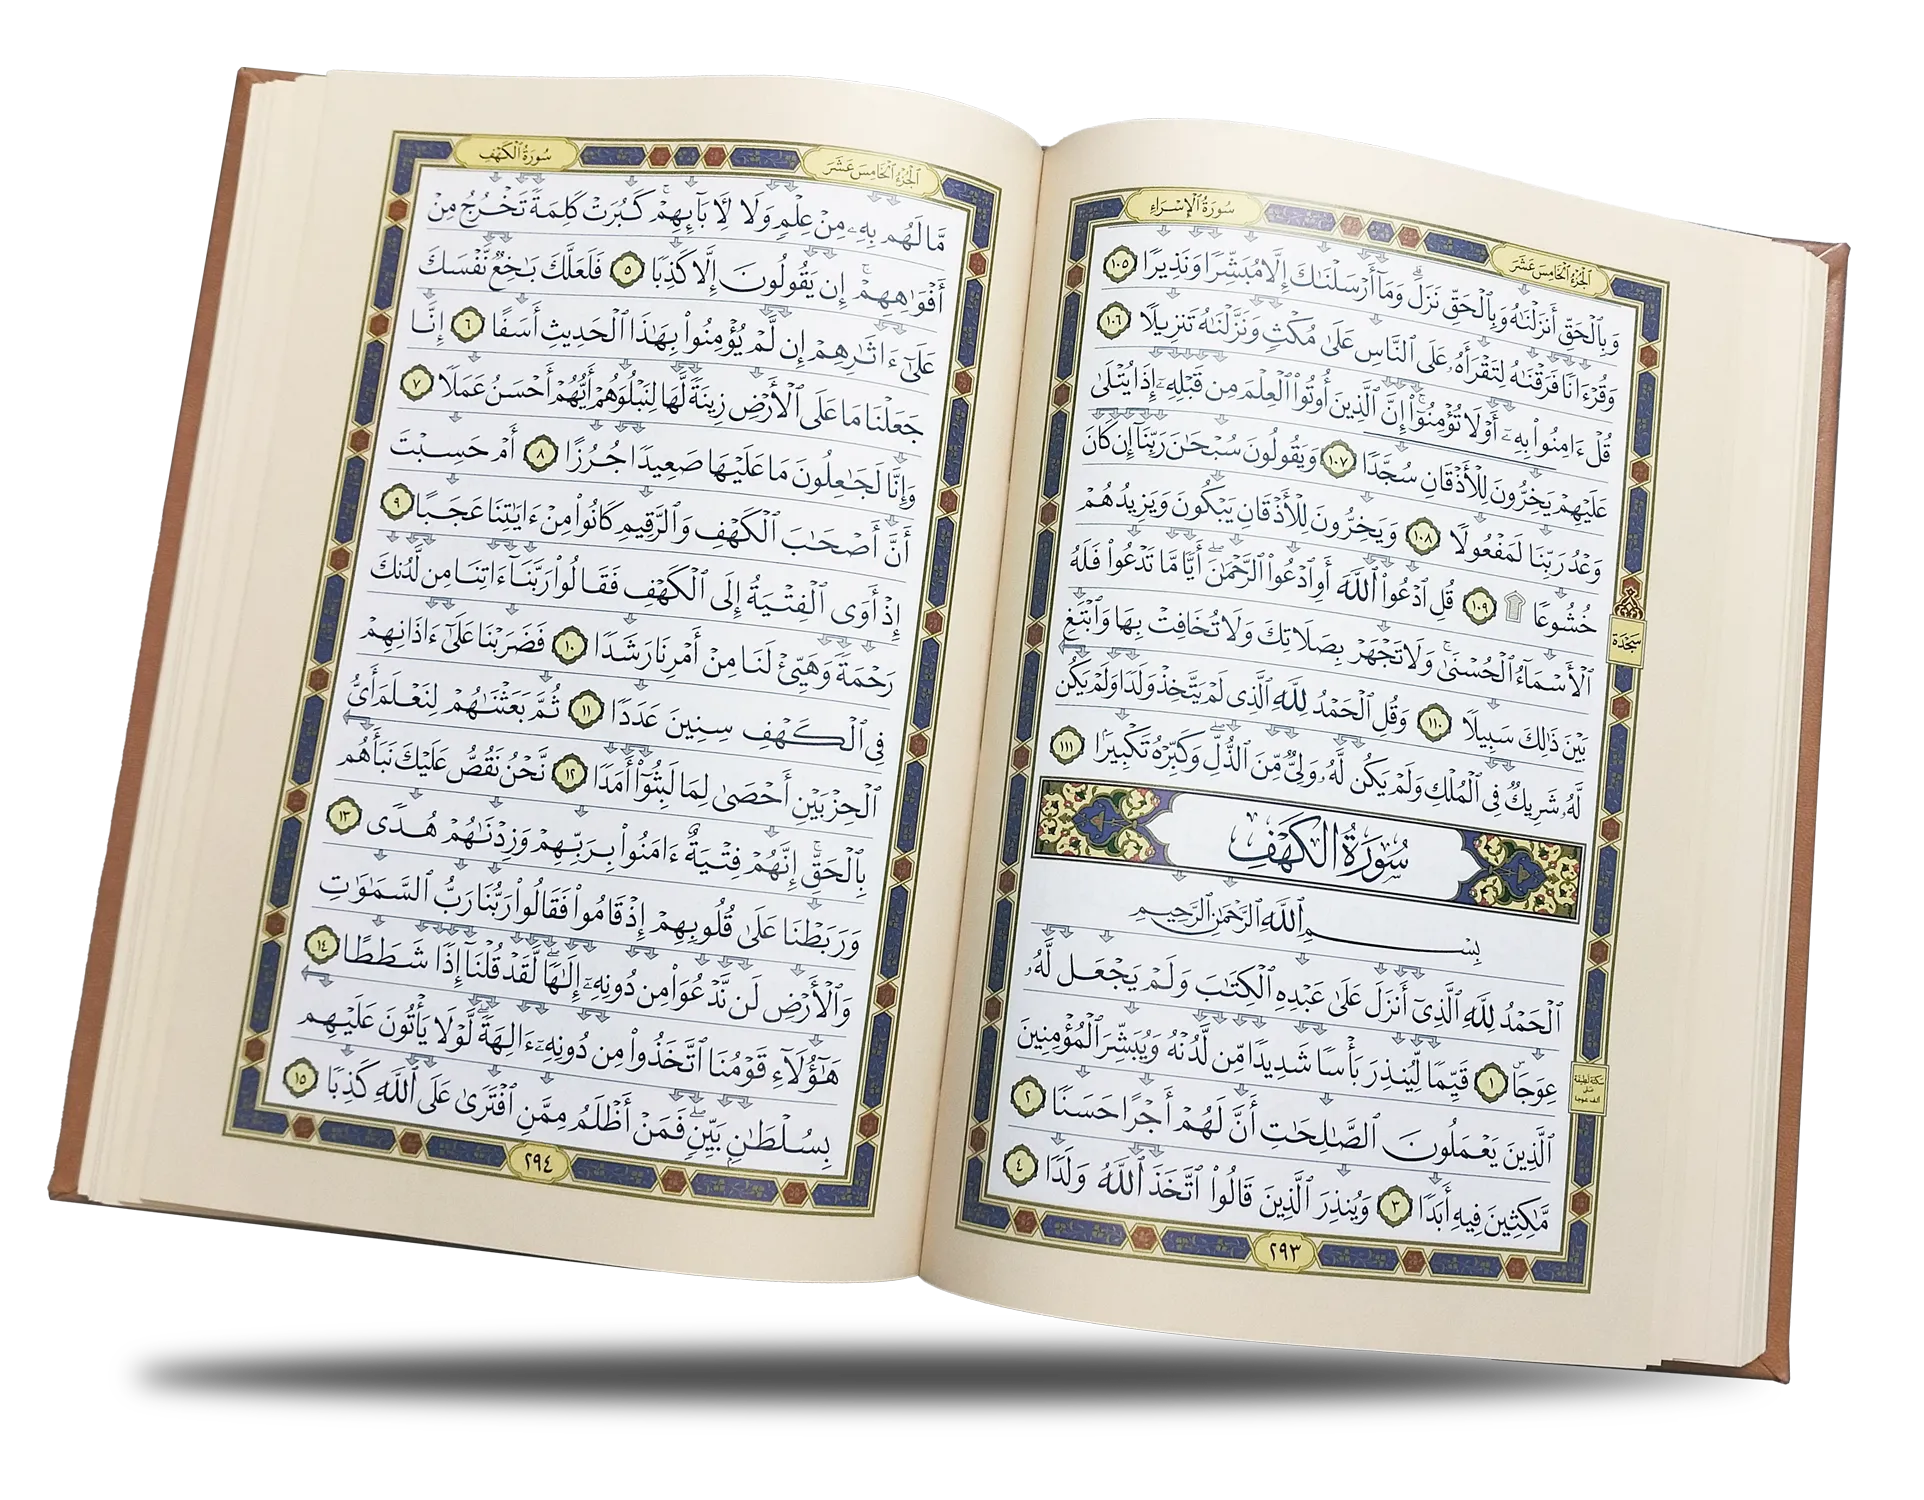 سُورَةُ ٱلْإِسْرَاءِ
ٱلْجُزْءُ ٱلْخَامِسَ عَشَرَ
وَبِٱلْحَقِّ أَنزَلْنَٰهُ وَبِٱلْحَقِّ نَزَلَ ۗ وَمَآ أَرْسَلْنَٰكَ إِلَّا مُبَشِّرًا وَنَذِيرًا ١٠٥
وَقُرْءَانًا فَرَقْنَٰهُ لِتَقْرَأَهُۥ عَلَى ٱلنَّاسِ عَلَىٰ مُكْثٍ وَنَزَّلْنَٰهُ تَنزِيلًا ١٠٦
قُلْ ءَامِنُوا۟ بِهِۦٓ أَوْ لَا تُؤْمِنُوٓا۟ ۚ إِنَّ ٱلَّذِينَ أُوتُوا۟ ٱلْعِلْمَ مِن قَبْلِهِۦٓ إِذَا يُتْلَىٰ
عَلَيْهِمْ يَخِرُّونَ لِلْأَذْقَانِ سُجَّدًا ١٠٧ وَيَقُولُونَ سُبْحَٰنَ رَبِّنَآ إِن كَانَ
وَعْدُ رَبِّنَا لَمَفْعُولًا ١٠٨ وَيَخِرُّونَ لِلْأَذْقَانِ يَبْكُونَ وَيَزِيدُهُمْ
خُشُوعًا ۩ ١٠٩ قُلِ ٱدْعُوا۟ ٱللَّهَ أَوِ ٱدْعُوا۟ ٱلرَّحْمَٰنَ ۖ أَيًّا مَّا تَدْعُوا۟ فَلَهُ
ٱلْأَسْمَآءُ ٱلْحُسْنَىٰ ۚ وَلَا تَجْهَرْ بِصَلَاتِكَ وَلَا تُخَافِتْ بِهَا وَٱبْتَغِ
بَيْنَ ذَٰلِكَ سَبِيلًا ١١٠ وَقُلِ ٱلْحَمْدُ لِلَّهِ ٱلَّذِى لَمْ يَتَّخِذْ وَلَدًا وَلَمْ يَكُن
لَّهُۥ شَرِيكٌ فِى ٱلْمُلْكِ وَلَمْ يَكُن لَّهُۥ وَلِىٌّ مِّنَ ٱلذُّلِّ ۖ وَكَبِّرْهُ تَكْبِيرًۢا ١١١
سُورَةُ الكَهْفِ
بِسْمِ ٱللَّهِ ٱلرَّحْمَٰنِ ٱلرَّحِيمِ
ٱلْحَمْدُ لِلَّهِ ٱلَّذِىٓ أَنزَلَ عَلَىٰ عَبْدِهِ ٱلْكِتَٰبَ وَلَمْ يَجْعَل لَّهُۥ
عِوَجَا ۜ ١ قَيِّمًا لِّيُنذِرَ بَأْسًا شَدِيدًا مِّن لَّدُنْهُ وَيُبَشِّرَ ٱلْمُؤْمِنِينَ
ٱلَّذِينَ يَعْمَلُونَ ٱلصَّٰلِحَٰتِ أَنَّ لَهُمْ أَجْرًا حَسَنًا ٢
مَّٰكِثِينَ فِيهِ أَبَدًا ٣ وَيُنذِرَ ٱلَّذِينَ قَالُوا۟ ٱتَّخَذَ ٱللَّهُ وَلَدًا ٤
سَجْدَة
سكتة لطيفة
على
ألف عوجا
٢٩٣
سُورَةُ ٱلْكَهْفِ
ٱلْجُزْءُ ٱلْخَامِسَ عَشَرَ
مَّا لَهُم بِهِۦ مِنْ عِلْمٍ وَلَا لِـَٔابَآئِهِمْ ۚ كَبُرَتْ كَلِمَةً تَخْرُجُ مِنْ
أَفْوَٰهِهِمْ ۚ إِن يَقُولُونَ إِلَّا كَذِبًا ٥ فَلَعَلَّكَ بَٰخِعٌ نَّفْسَكَ
عَلَىٰٓ ءَاثَٰرِهِمْ إِن لَّمْ يُؤْمِنُوا۟ بِهَٰذَا ٱلْحَدِيثِ أَسَفًا ٦ إِنَّا
جَعَلْنَا مَا عَلَى ٱلْأَرْضِ زِينَةً لَّهَا لِنَبْلُوَهُمْ أَيُّهُمْ أَحْسَنُ عَمَلًا ٧
وَإِنَّا لَجَٰعِلُونَ مَا عَلَيْهَا صَعِيدًا جُرُزًا ٨ أَمْ حَسِبْتَ
أَنَّ أَصْحَٰبَ ٱلْكَهْفِ وَٱلرَّقِيمِ كَانُوا۟ مِنْ ءَايَٰتِنَا عَجَبًا ٩
إِذْ أَوَى ٱلْفِتْيَةُ إِلَى ٱلْكَهْفِ فَقَالُوا۟ رَبَّنَآ ءَاتِنَا مِن لَّدُنكَ
رَحْمَةً وَهَيِّئْ لَنَا مِنْ أَمْرِنَا رَشَدًا ١٠ فَضَرَبْنَا عَلَىٰٓ ءَاذَانِهِمْ
فِى ٱلْكَهْفِ سِنِينَ عَدَدًا ١١ ثُمَّ بَعَثْنَٰهُمْ لِنَعْلَمَ أَىُّ
ٱلْحِزْبَيْنِ أَحْصَىٰ لِمَا لَبِثُوٓا۟ أَمَدًا ١٢ نَّحْنُ نَقُصُّ عَلَيْكَ نَبَأَهُم
بِٱلْحَقِّ ۚ إِنَّهُمْ فِتْيَةٌ ءَامَنُوا۟ بِرَبِّهِمْ وَزِدْنَٰهُمْ هُدًى ١٣
وَرَبَطْنَا عَلَىٰ قُلُوبِهِمْ إِذْ قَامُوا۟ فَقَالُوا۟ رَبُّنَا رَبُّ ٱلسَّمَٰوَٰتِ
وَٱلْأَرْضِ لَن نَّدْعُوَا۟ مِن دُونِهِۦٓ إِلَٰهًا ۖ لَّقَدْ قُلْنَآ إِذًا شَطَطًا ١٤
هَٰٓؤُلَآءِ قَوْمُنَا ٱتَّخَذُوا۟ مِن دُونِهِۦٓ ءَالِهَةً ۖ لَّوْلَا يَأْتُونَ عَلَيْهِم
بِسُلْطَٰنٍۭ بَيِّنٍ ۖ فَمَنْ أَظْلَمُ مِمَّنِ ٱفْتَرَىٰ عَلَى ٱللَّهِ كَذِبًا ١٥
٢٩٤